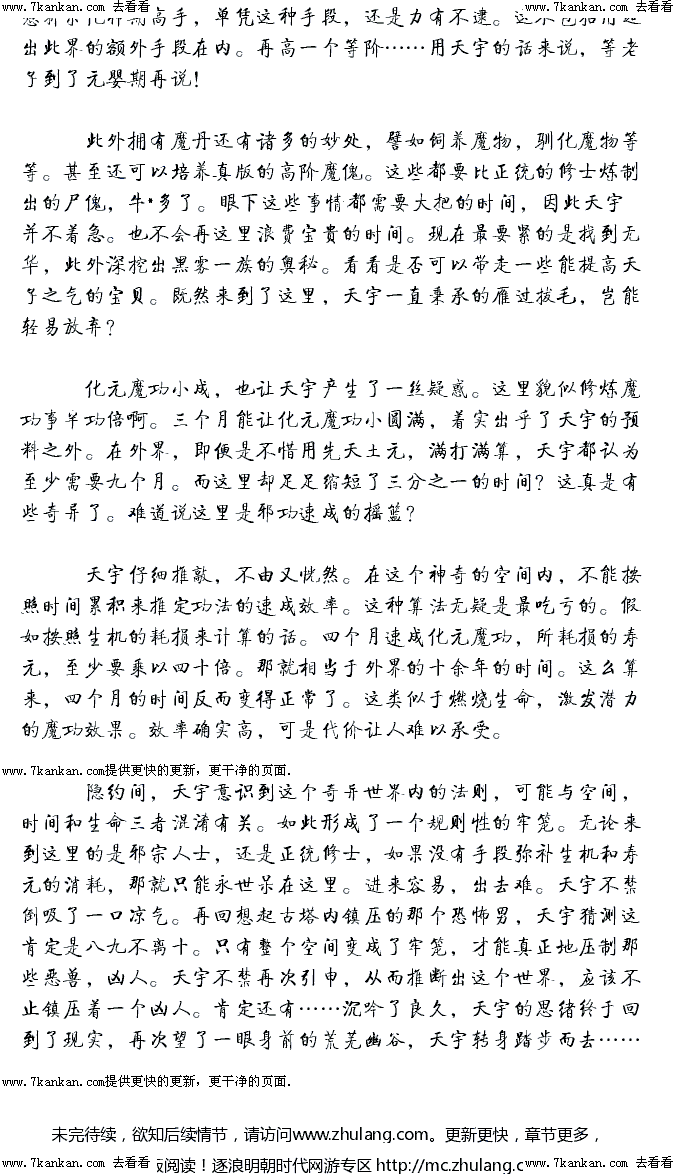 www.7kankan.com 去看看 www.7kankan.com 去看看 www.7kankan.com 去看看 www.7kankan.com 去看看 www.7kankan.com 去看看
化神期高手，单凭这种手段，还是力有不逮。这不包括用逃
出此界的额外手段在内。再高一个等阶……用天宇的话来说，等老
子到了元婴期再说！
此外拥有魔丹还有诸多的妙处，譬如饲养魔物，驯化魔物等
等。甚至还可以培养真版的高阶魔傀。这些都要比正统的修士炼制
出的尸傀，牛·多了。眼下这些事情都需要大把的时间，因此天宇
并不着急。也不会再这里浪费宝贵的时间。现在最要紧的是找到无
华，此外深挖出黑雾一族的奥秘。看看是否可以带走一些能提高天
子之气的宝贝。既然来到了这里，天宇一直秉承的雁过拔毛，岂能
轻易放弃？
化元魔功小成，也让天宇产生了一丝疑惑。这里貌似修炼魔
功事半功倍啊。三个月能让化元魔功小圆满，着实出乎了天宇的预
料之外。在外界，即便是不惜用先天土元，满打满算，天宇都认为
至少需要九个月。而这里却足足缩短了三分之一的时间？这真是有
些奇异了。难道说这里是邪功速成的摇篮？
天宇仔细推敲，不由又恍然。在这个神奇的空间内，不能按
照时间累积来推定功法的速成效率。这种算法无疑是最吃亏的。假
如按照生机的耗损来计算的话。四个月速成化元魔功，所耗损的寿
元，至少要乘以四十倍。那就相当于外界的十余年的时间。这么算
来，四个月的时间反而变得正常了。这类似于燃烧生命，激发潜力
的魔功效果。效率确实高，可是代价让人难以承受。
www.7kankan.com提供更快的更新，更干净的页面.
隐约间，天宇意识到这个奇异世界内的法则，可能与空间，
时间和生命三者混淆有关。如此形成了一个规则性的牢笼。无论来
到这里的是邪宗人士，还是正统修士，如果没有手段弥补生机和寿
元的消耗，那就只能永世呆在这里。进来容易，出去难。天宇不禁
倒吸了一口凉气。再回想起古塔内镇压的那个恐怖男，天宇猜测这
肯定是八九不离十。只有整个空间变成了牢笼，才能真正地压制那
些恶兽，凶人。天宇不禁再次引申，从而推断出这个世界，应该不
止镇压着一个凶人。肯定还有……沉吟了良久，天宇的思绪终于回
到了现实，再次望了一眼身前的荒芜幽谷，天宇转身踏步而去……
www.7kankan.com提供更快的更新，更干净的页面.
未完待续，欲知后续情节，请访问www.zhulang.com。更新更快，章节更多，
www.7kankan.com 去看看 阅读！逐浪明朝时代网游专区 http://mc.zhulang.co www.7kankan.com 去看看